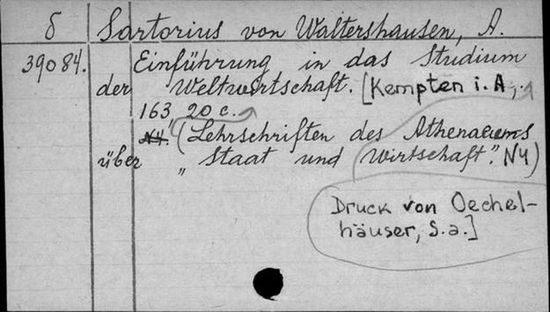 δ Sartorius von Waltershausen, A.
39084. Einführung in das Studium
der Weltwirtschaft. [Kempten i. A.,
163, 20 c.
N4. (Lehrschriften des Athenaeums
über „Staat und Wirtschaft". N4)
Druck von Oechel-
häuser, S.a.]